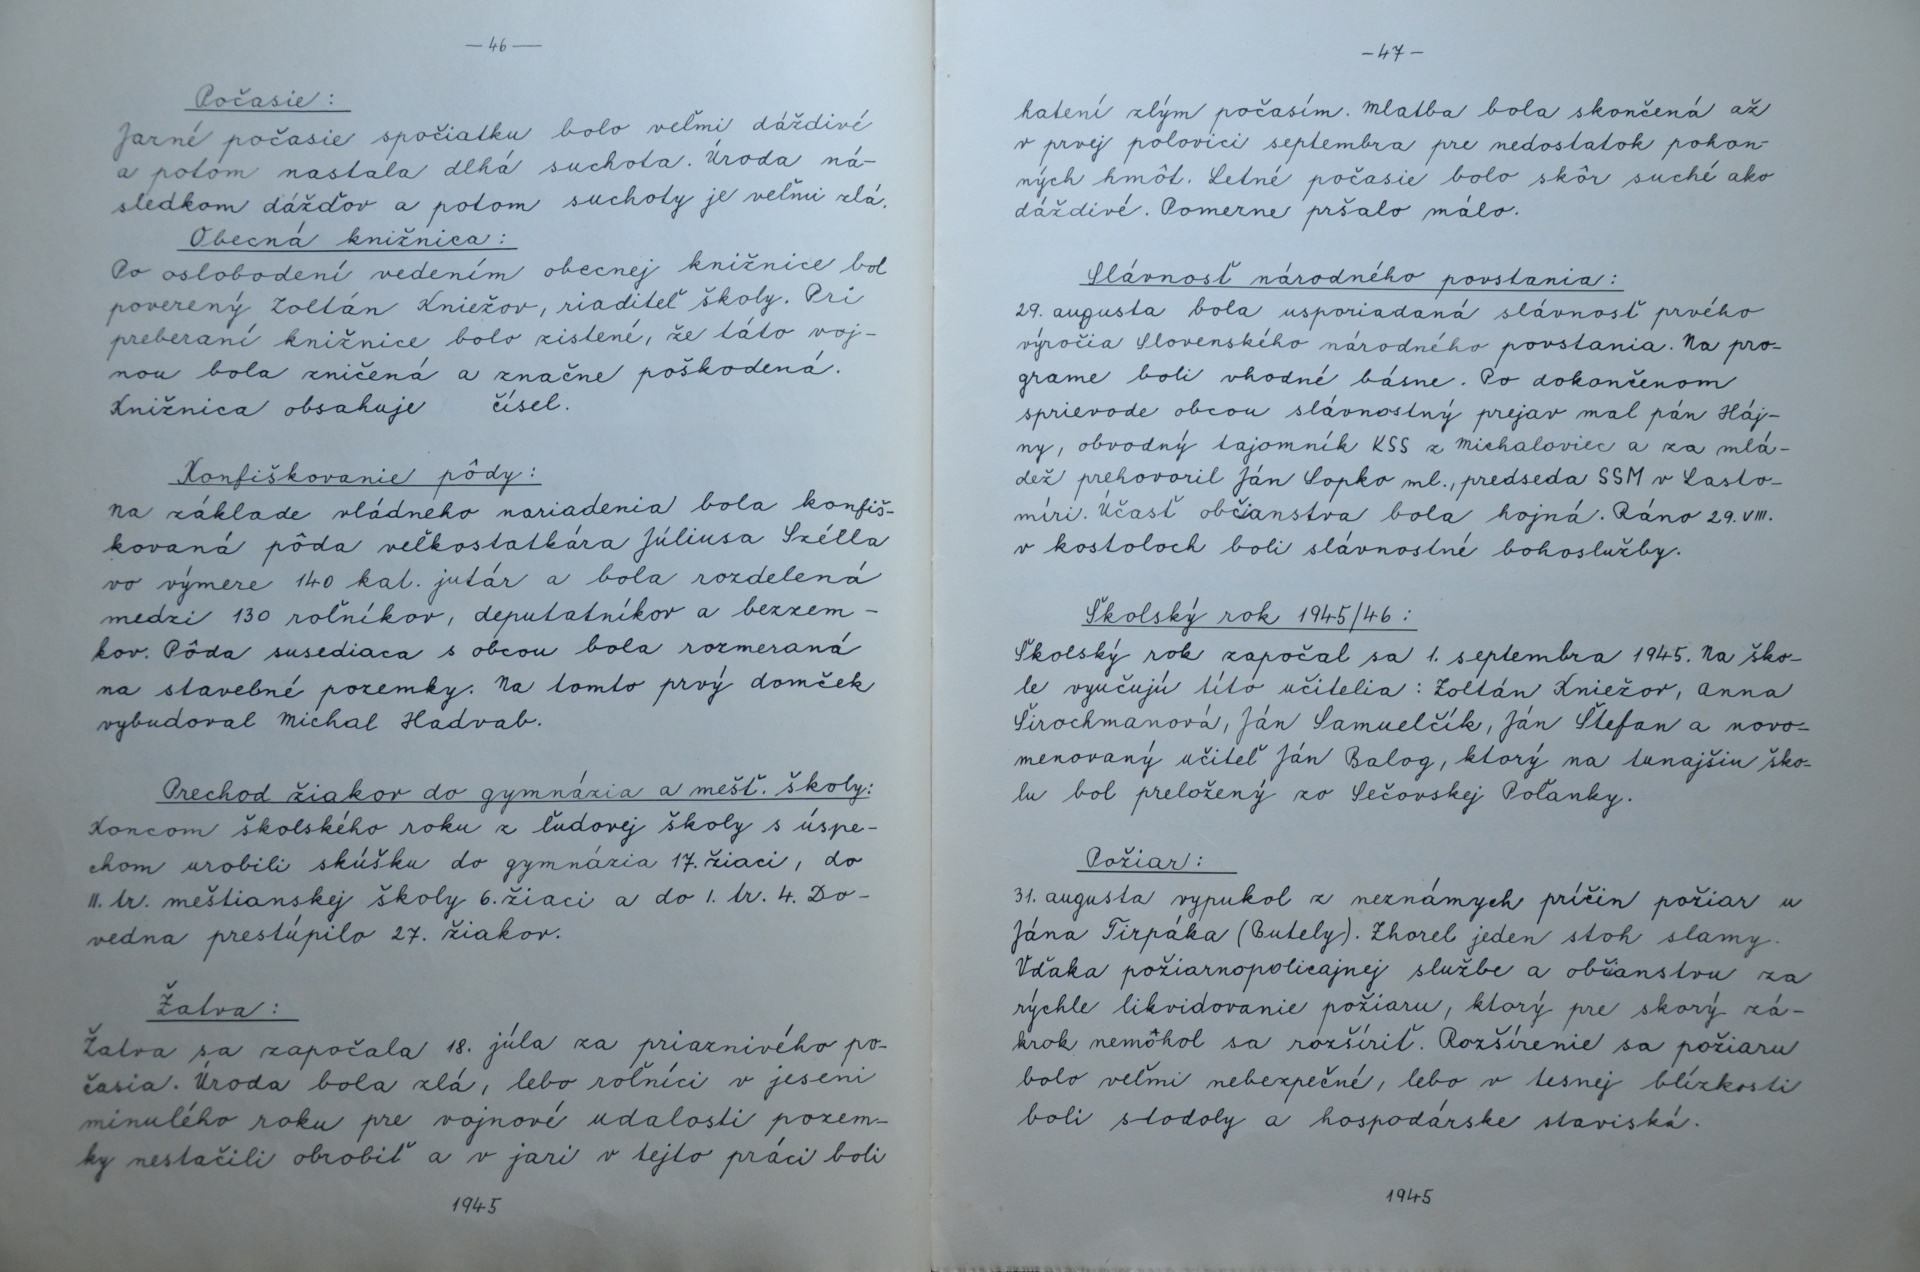 — 46 —
Počasie :
Jarné počasie spočiatku bolo veľmi dáždivé
a potom nastala dlhá suchota. Úroda ná-
sledkom dážďov a potom suchoty je veľmi zlá.
Obecná knižnica :
Po oslobodení vedením obecnej knižnice bol
poverený Zoltán Kniežov, riaditeľ školy. Pri
preberaní knižnice bolo zistené, že táto voj-
nou bola zničená a značne poškodená.
Knižnica obsahuje čísel.
Konfiškovanie pôdy :
Na základe vládneho nariadenia bola konfiš-
kovaná pôda veľkostatkára Júliusa Szélla
vo výmere 140 kat. jutár a bola rozdelená
medzi 130 roľníkov, deputatníkov a bezzem-
kov. Pôda susediaca s obcou bola rozmeraná
na stavebné pozemky. Na tomto prvý domček
vybudoval Michal Hadvab.
Prechod žiakov do gymnázia a mešť. školy:
Koncom školského roku z ľudovej školy s úspe-
chom urobili skúšku do gymnázia 17. žiaci, do
II. tr. meštianskej školy 6. žiaci a do 1. tr. 4. Do-
vedna prestúpilo 27. žiakov.
Žatva :
Žatva sa započala 18. júla za priaznivého po-
časia. Úroda bola zlá, lebo roľníci v jeseni
minulého roku pre vojnové udalosti pozem-
ky nestačili obrobiť a v jari v tejto práci boli
1945
— 47 —
hatení zlým počasím. Mlatba bola skončená až
v prvej polovici septembra pre nedostatok pohon-
ných hmôt. Letné počasie bolo skôr suché ako
dáždivé. Pomerne pršalo málo.
Slávnosť národného povstania :
29. augusta bola usporiadaná slávnosť prvého
výročia Slovenského národného povstania. Na pro-
grame boli vhodné básne. Po dokončenom
sprievode obcou slávnostný prejav mal pán Háj-
ny, obvodný tajomník KSS z Michaloviec a za mlá-
dež prehovoril Ján Lopko ml., predseda SSM v Lasto-
míri. Účasť občianstva bola hojná. Ráno 29. VIII.
v kostoloch boli slávnostné bohoslužby.
Školský rok 1945/46 :
Školský rok započal sa 1. septembra 1945. Na ško-
le vyučujú títo učitelia : Zoltán Kniežov, Anna
Širochmanová, Ján Samuelčík, Ján Štefan a novo-
menovaný učiteľ Ján Balog, ktorý na tunajšiu ško-
lu bol preložený zo Sečovskej Poľanky.
Požiar :
31. augusta vypukol z neznámych príčin požiar u
Jána Tirpáka (Butely). Zhorel jeden stoh slamy.
Vďaka požiarnopolicajnej službe a občianstvu za
rýchle likvidovanie požiaru, ktorý pre skorý zá-
krok nemôhol sa rozšíriť. Rozšírenie sa požiaru
bolo veľmi nebezpečné, lebo v tesnej blízkosti
boli stodoly a hospodárske staviská.
1945